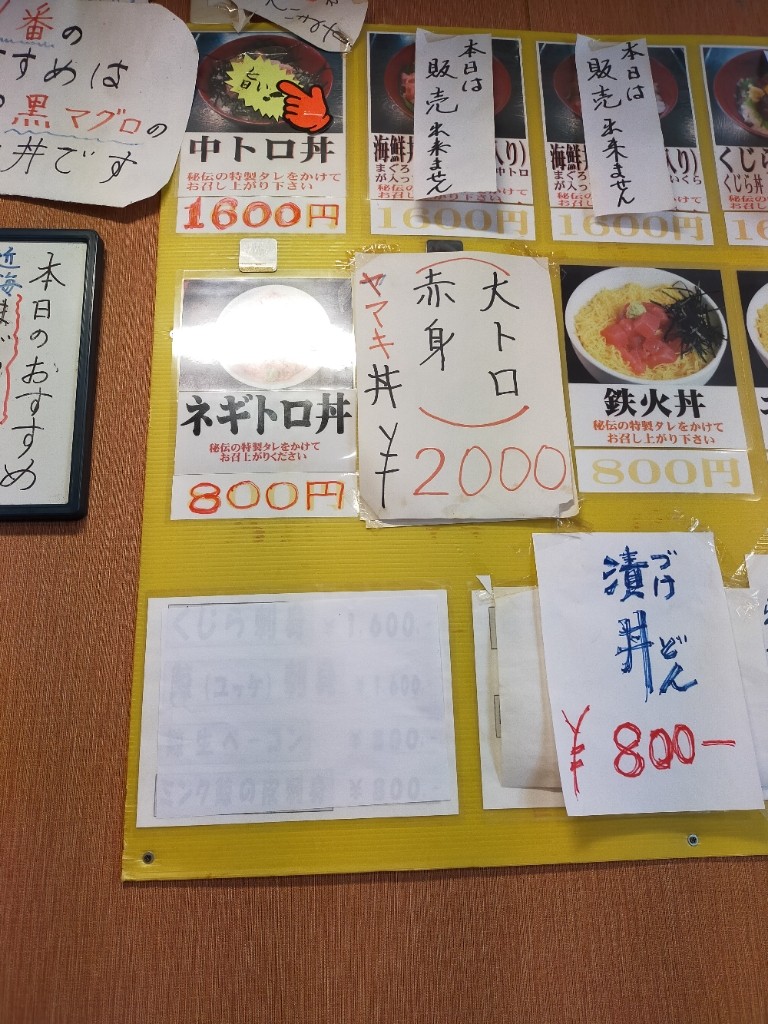 番の
すめは
黒マグロの
丼です
本日のおすすめ
近海
旨い!
中トロ丼
秘伝の特製タレをかけて
お召し上がり下さい
1600円
本日は
販売出来ません
海鮮
入り)
まぐろ
中トロ
が入っ
1600円
本日は
販売出来ません
海鮮
入り)
まぐろ
いくら
が入っ
1600円
くじら
くじら丼
ネギトロ丼
秘伝の特製タレをかけて
お召し上がりください
800円
ヤマキ丼
(大トロ
赤身)
¥2000
鉄火丼
秘伝の特製タレをかけて
お召し上がり下さい
800円
くじら刺身 1,600-
漬づけ
丼どん
¥800-